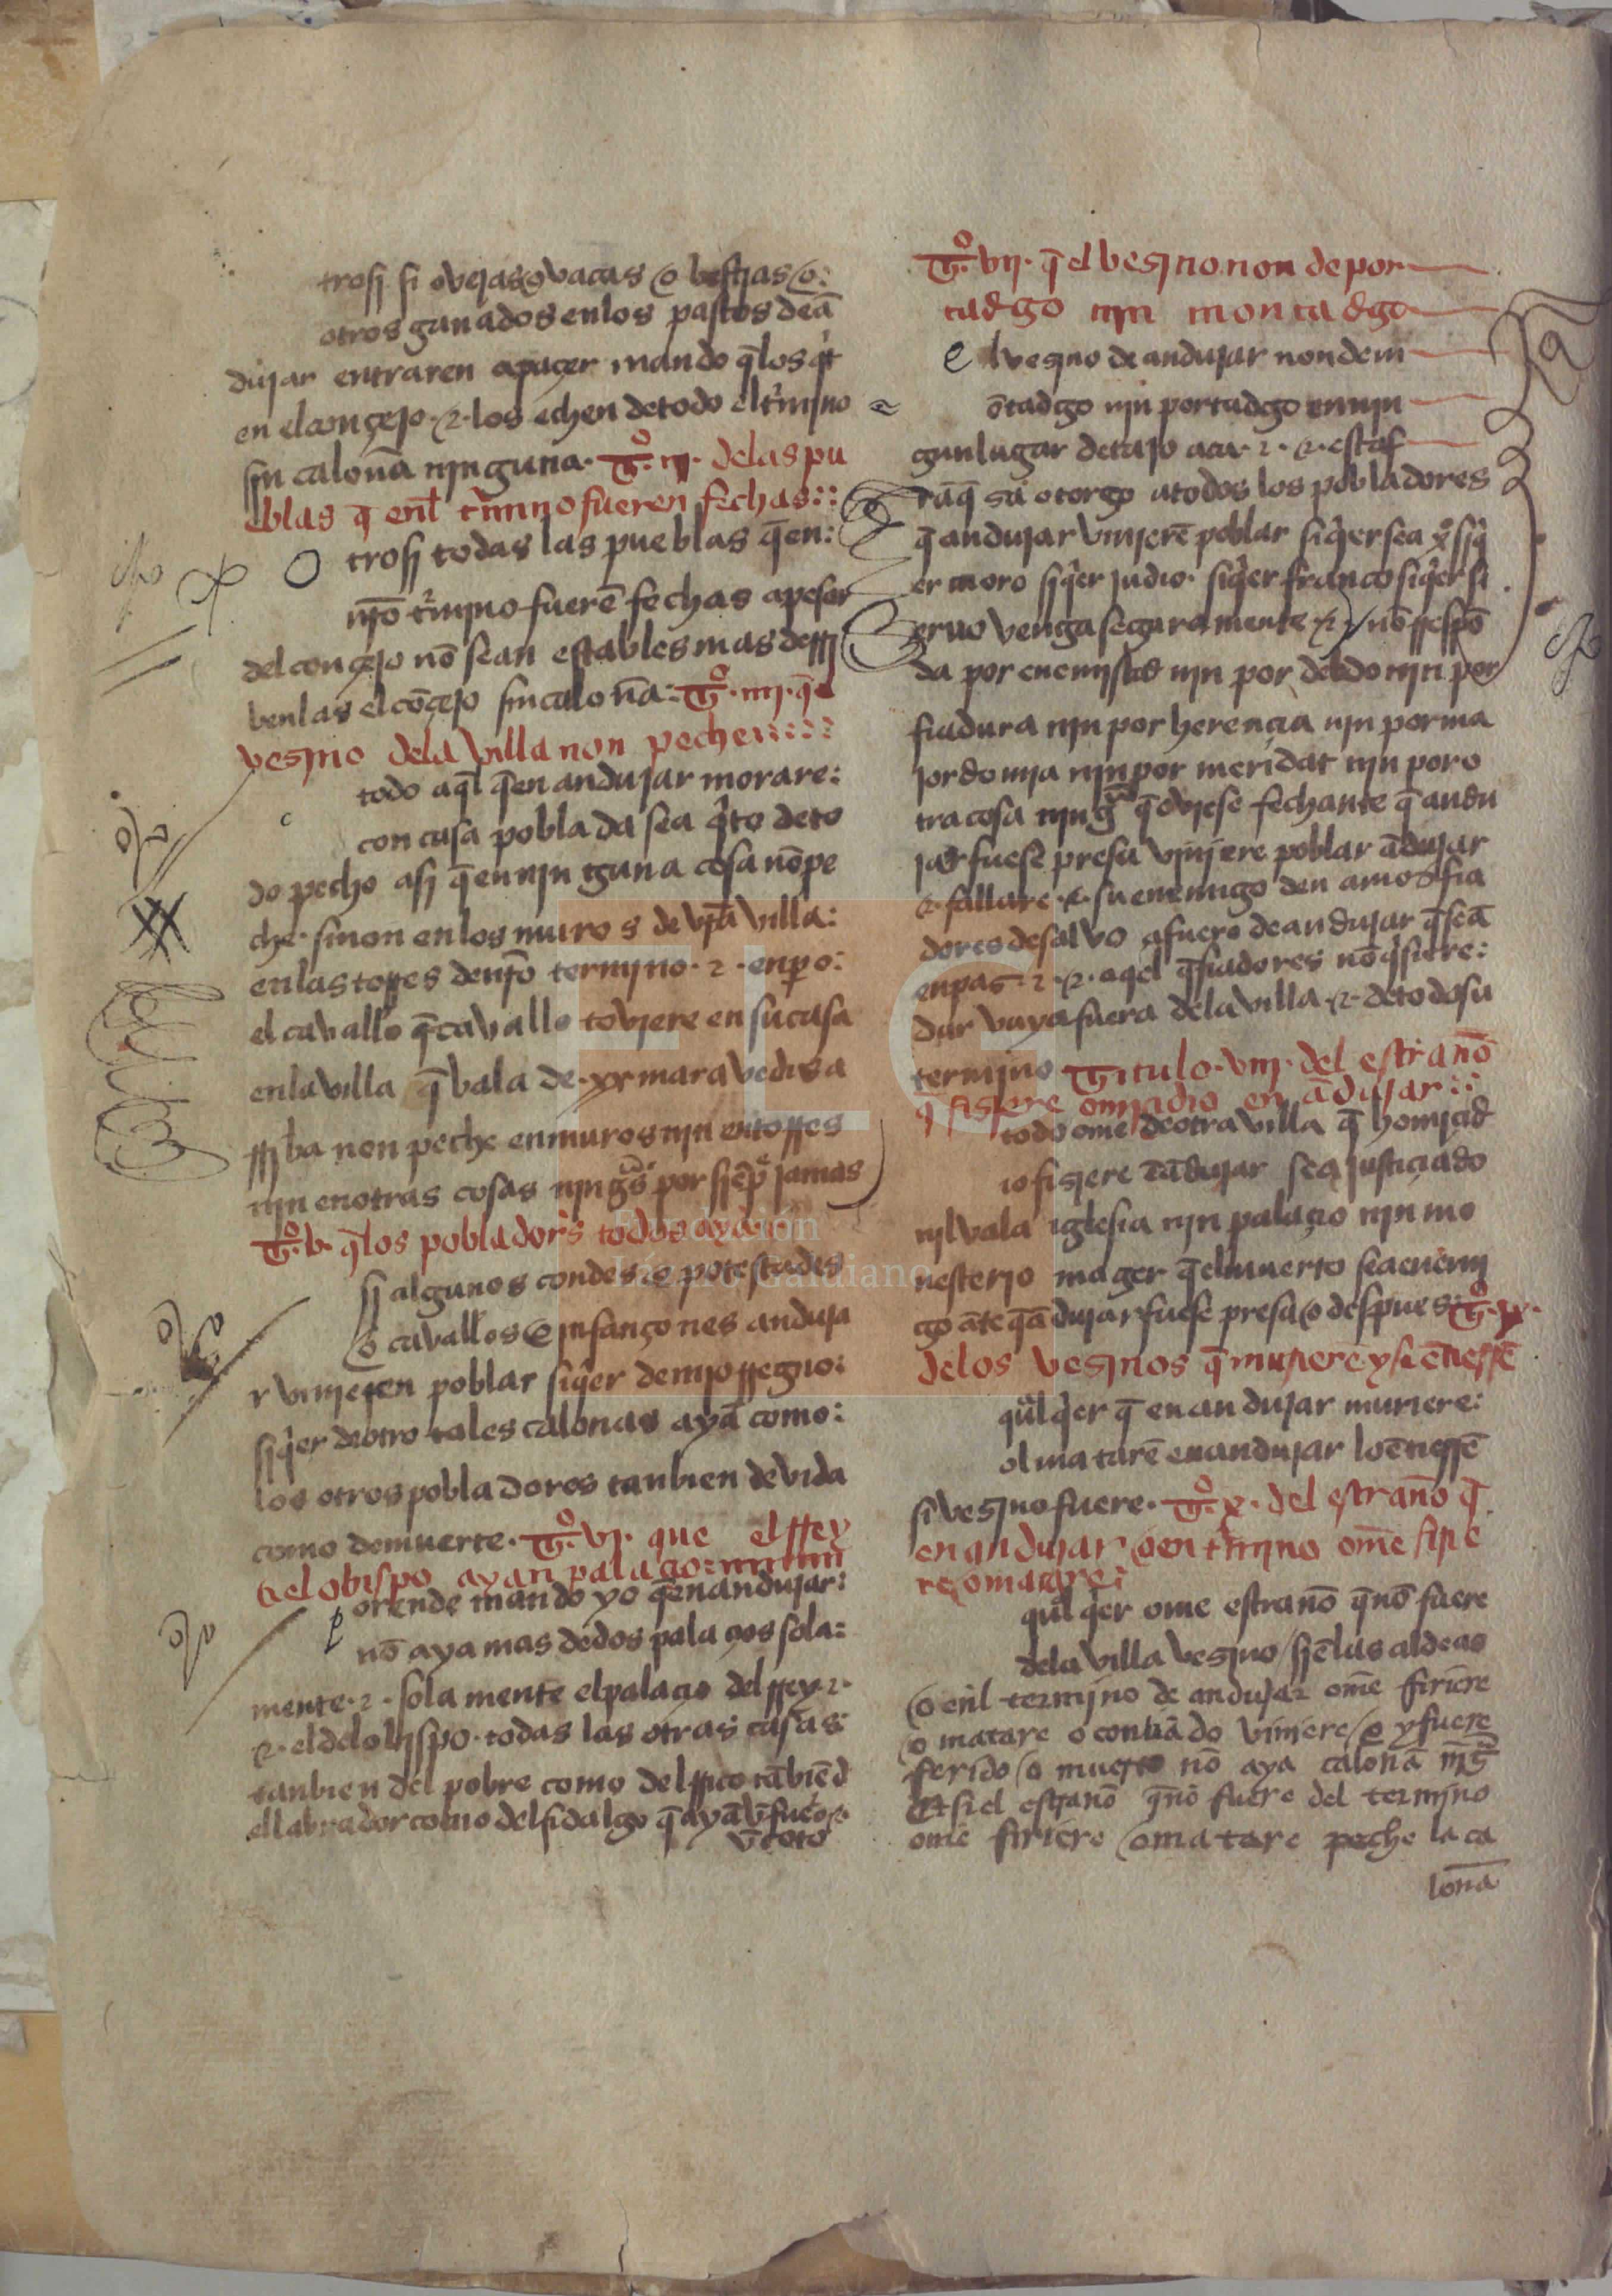 trosj si ovejas o vacas o bestias o:
otros ganados en los pastos de ā
dujar entraren a paçer mando q̄ los q̇t
en el conçejo · τ · los echen de todo el t̄mjno
sjn caloña njnguna · T̊. iij · de las pu
eblas q̄ enl t̄mjno fueren fechas ::
O trosj todas las pueblas q̄ en:
ṽro t̄mjno fuerē fechas a pesar
del conçejo nō sean estables mas deRRj
benlas el cōçejo sin caloña: T̊. iiij · q̄ el
vesjno de la villa non peche ::::
todo aq̄l q̄ en andujar morare:
con casa poblada sea q̇to de to
do pecho asj q̄ en njn guna cosa nō pe
che · sinon en los muros de vr̄a villa:
en las toRRes de ṽro termjno · τ · enp̱o:
el cavallo q̄ cavallo tovjere en su casa
en la villa q̄ vala de · xx maravedis a
RRjba non peche en muros njn en toRRes
njn en otras cosas njng̃s por sjēp̃ jamas
T̊. v · q̄ los pobladores todos ayā
sj algunos condes o potestades
o cavallos o jnfançones anduja
r vinjeren poblar siq̇er de mjo RRegno:
siq̇er de otro tales calonas ayā como:
los otros pobladores tanbien de vida
como de muerte · T̊. vj · que el RRey
τ el obispo ayan palaçio:
p orende mando yo q̄ en andujar:
nō aya mas de dos palaçios sola:
mente · τ · sola mente el palaçio del RRey · τ ·
τ · el del obispo · todas las otras casas:
tanbien del pobre como del RRico tābiē d
el labrador como del fidalgo q̄ ayā v̄ fuero τ
v̄ coto
T̊. vij · q̄ el vesjno non de por
tadgo njn montadgo
e l vesjno de andujar non de m
ōtadgo njn portadgo en njn
gun lugar de tajo aca · τ · τ · esta f
rāq̄sa otorgo a todos los pobladores
q̄ andujar vinjerē poblar siq̇er sea xp̊sq̇
er moro siq̇er judio · siq̇er franco siq̇er si
eruo venga segura mente · τ · nō RRespō
da por enemistad njn por debdo njn por
fiadura njn por herençia njn por ma
jordomja njn por meridat njn por o
tra cosa njng̃ q̄ ovjese fecha nte q̄ andu
jar fuese presa vinjere poblar ādujar
τ · fallare · τ · su enemigo den amos fia
dores de salvo a fuero de andujar q̄ seā
en pas · τ · τ · aq̄l q̄ fiadores nō q̇siere:
dar vaya fuera de la villa · τ · de todo su
termjno Titulo · viij · del estraño
q̄ fisjere omjçidio en ādujar ::
todo ome de otra villa q̄ homjçid
io fisjere ē ādujar sea justiçiado
njl vala iglesia njn palaçio njn mo
nesterjo mager q̄ el muerto sea enemj
go āte q̄ ādujar fuese presa o despues: T̊. ix ·
de los vesjnos q̄ murierē y si ētieRRē
qu̇lq̇er q̄ en andujar muriere:
ol matarē en andujar lo ētieRRē
si vesjno fuere · T̊. x · del estraño q̄
en andujar o en t̄mjno ome firie
re o matare:
qu̇lq̇er ome estraño q̄ nō fuere
de la villa vesjno sj ē las aldeas
o enl termjno de andujar ome firiere
o matare o contiādo vinjere o y fuere
ferido o muerto nō aya caloña nīg̃
Et si el estraño q̄ nō fuere del termjno
ome firiere o matare peche la ca
loña
Fundación
Lázaro Galdiano
FLG